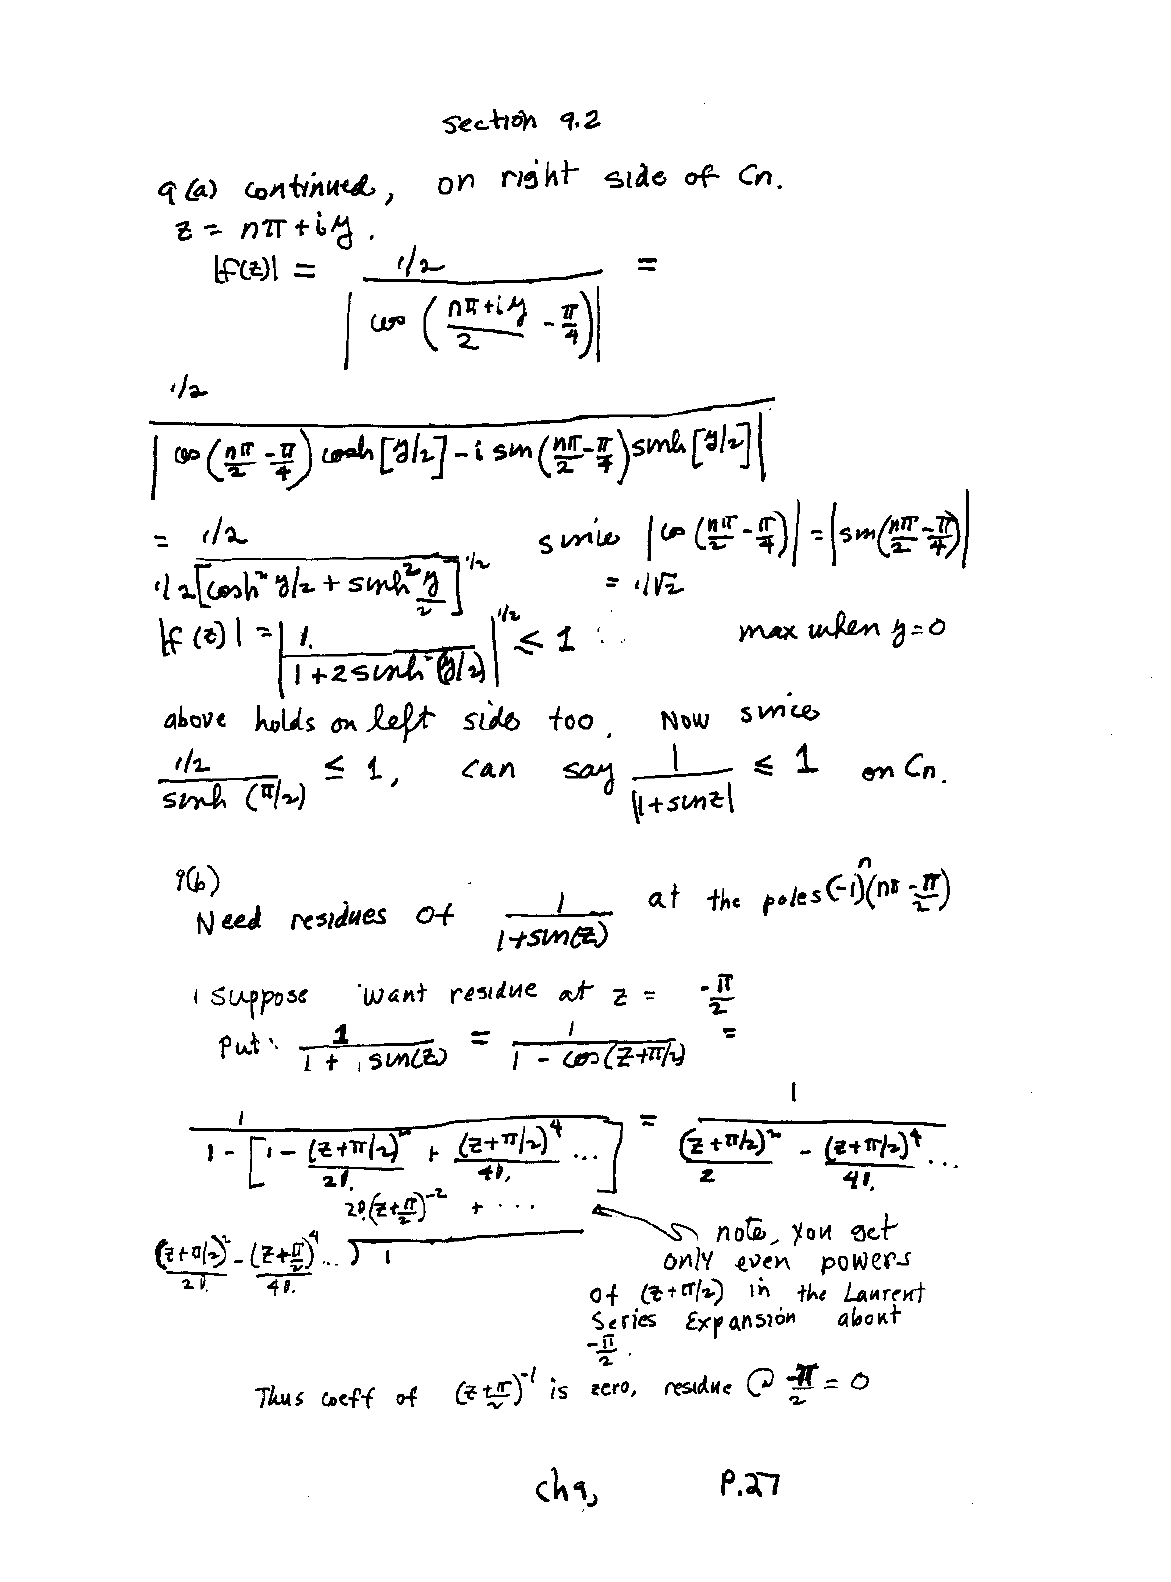 Section 9.2
9(a) continued, on right side of Cn.
z = nπ + iy.
|f(z)| = (1/2) / |cos((nπ+iy)/2 - π/4)| =
(1/2) / |cos(nπ/2 - π/4) cosh[y/2] - i sin(nπ/2 - π/4) sinh[y/2]|
= (1/2) / (1/2 [cosh² y/2 + sinh² y/2]^1/2) since |cos(nπ/2 - π/4)| = |sin(nπ/2 - π/4)|
= 1/√2
|f(z)| = |1 / (1+2 sinh²(y/2))|^1/2 ≤ 1 max when y=0
above holds on left side too. Now since
(1/2) / sinh(π/2) ≤ 1, can say 1 / |1+sinz| ≤ 1 on Cn.
9(b)
Need residues of 1 / (1+sin(z)) at the poles (-1)^n (nπ - π/2)
suppose want residue at z = -π/2
Put: 1 / (1 + sin(z)) = 1 / (1 - cos(z+π/2)) =
1 / (1 - [1 - (z+π/2)²/2! + (z+π/2)^4/4! ...]) = 1 / ((z+π/2)²/2 - (z+π/2)^4/4! ...)
2!(z+π/2)^-2 + ...
(z+π/2)²/2! - (z+π/2)^4/4! ... ) 1
note, you get
only even powers
of (z+π/2) in the Laurent
Series Expansion about
-π/2.
Thus coeff of (z+π/2)^-1 is zero, residue @ -π/2 = 0
ch9, P.27